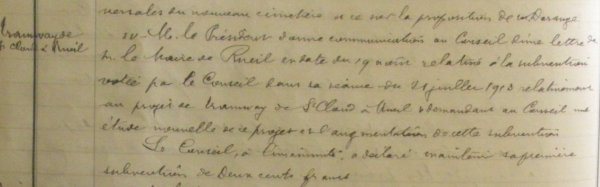 versales du nouveau cimetière et ce sur la proposition de M Derange
Tramway de
St Cloud à Rueil
IV. M. le Président donne communication au Conseil d'une lettre de
M. le Maire de Rueil en date du 19 août relative à la subvention
votée par le Conseil dans sa séance du 21 juillet 1913 relativement
au projet de tramway de St Cloud à Rueil & demandant au Conseil une
étude nouvelle de ce projet et l'augmentation de cette subvention
Le Conseil, à l'unanimité, a déclaré maintenir sa première
subvention de deux cents francs